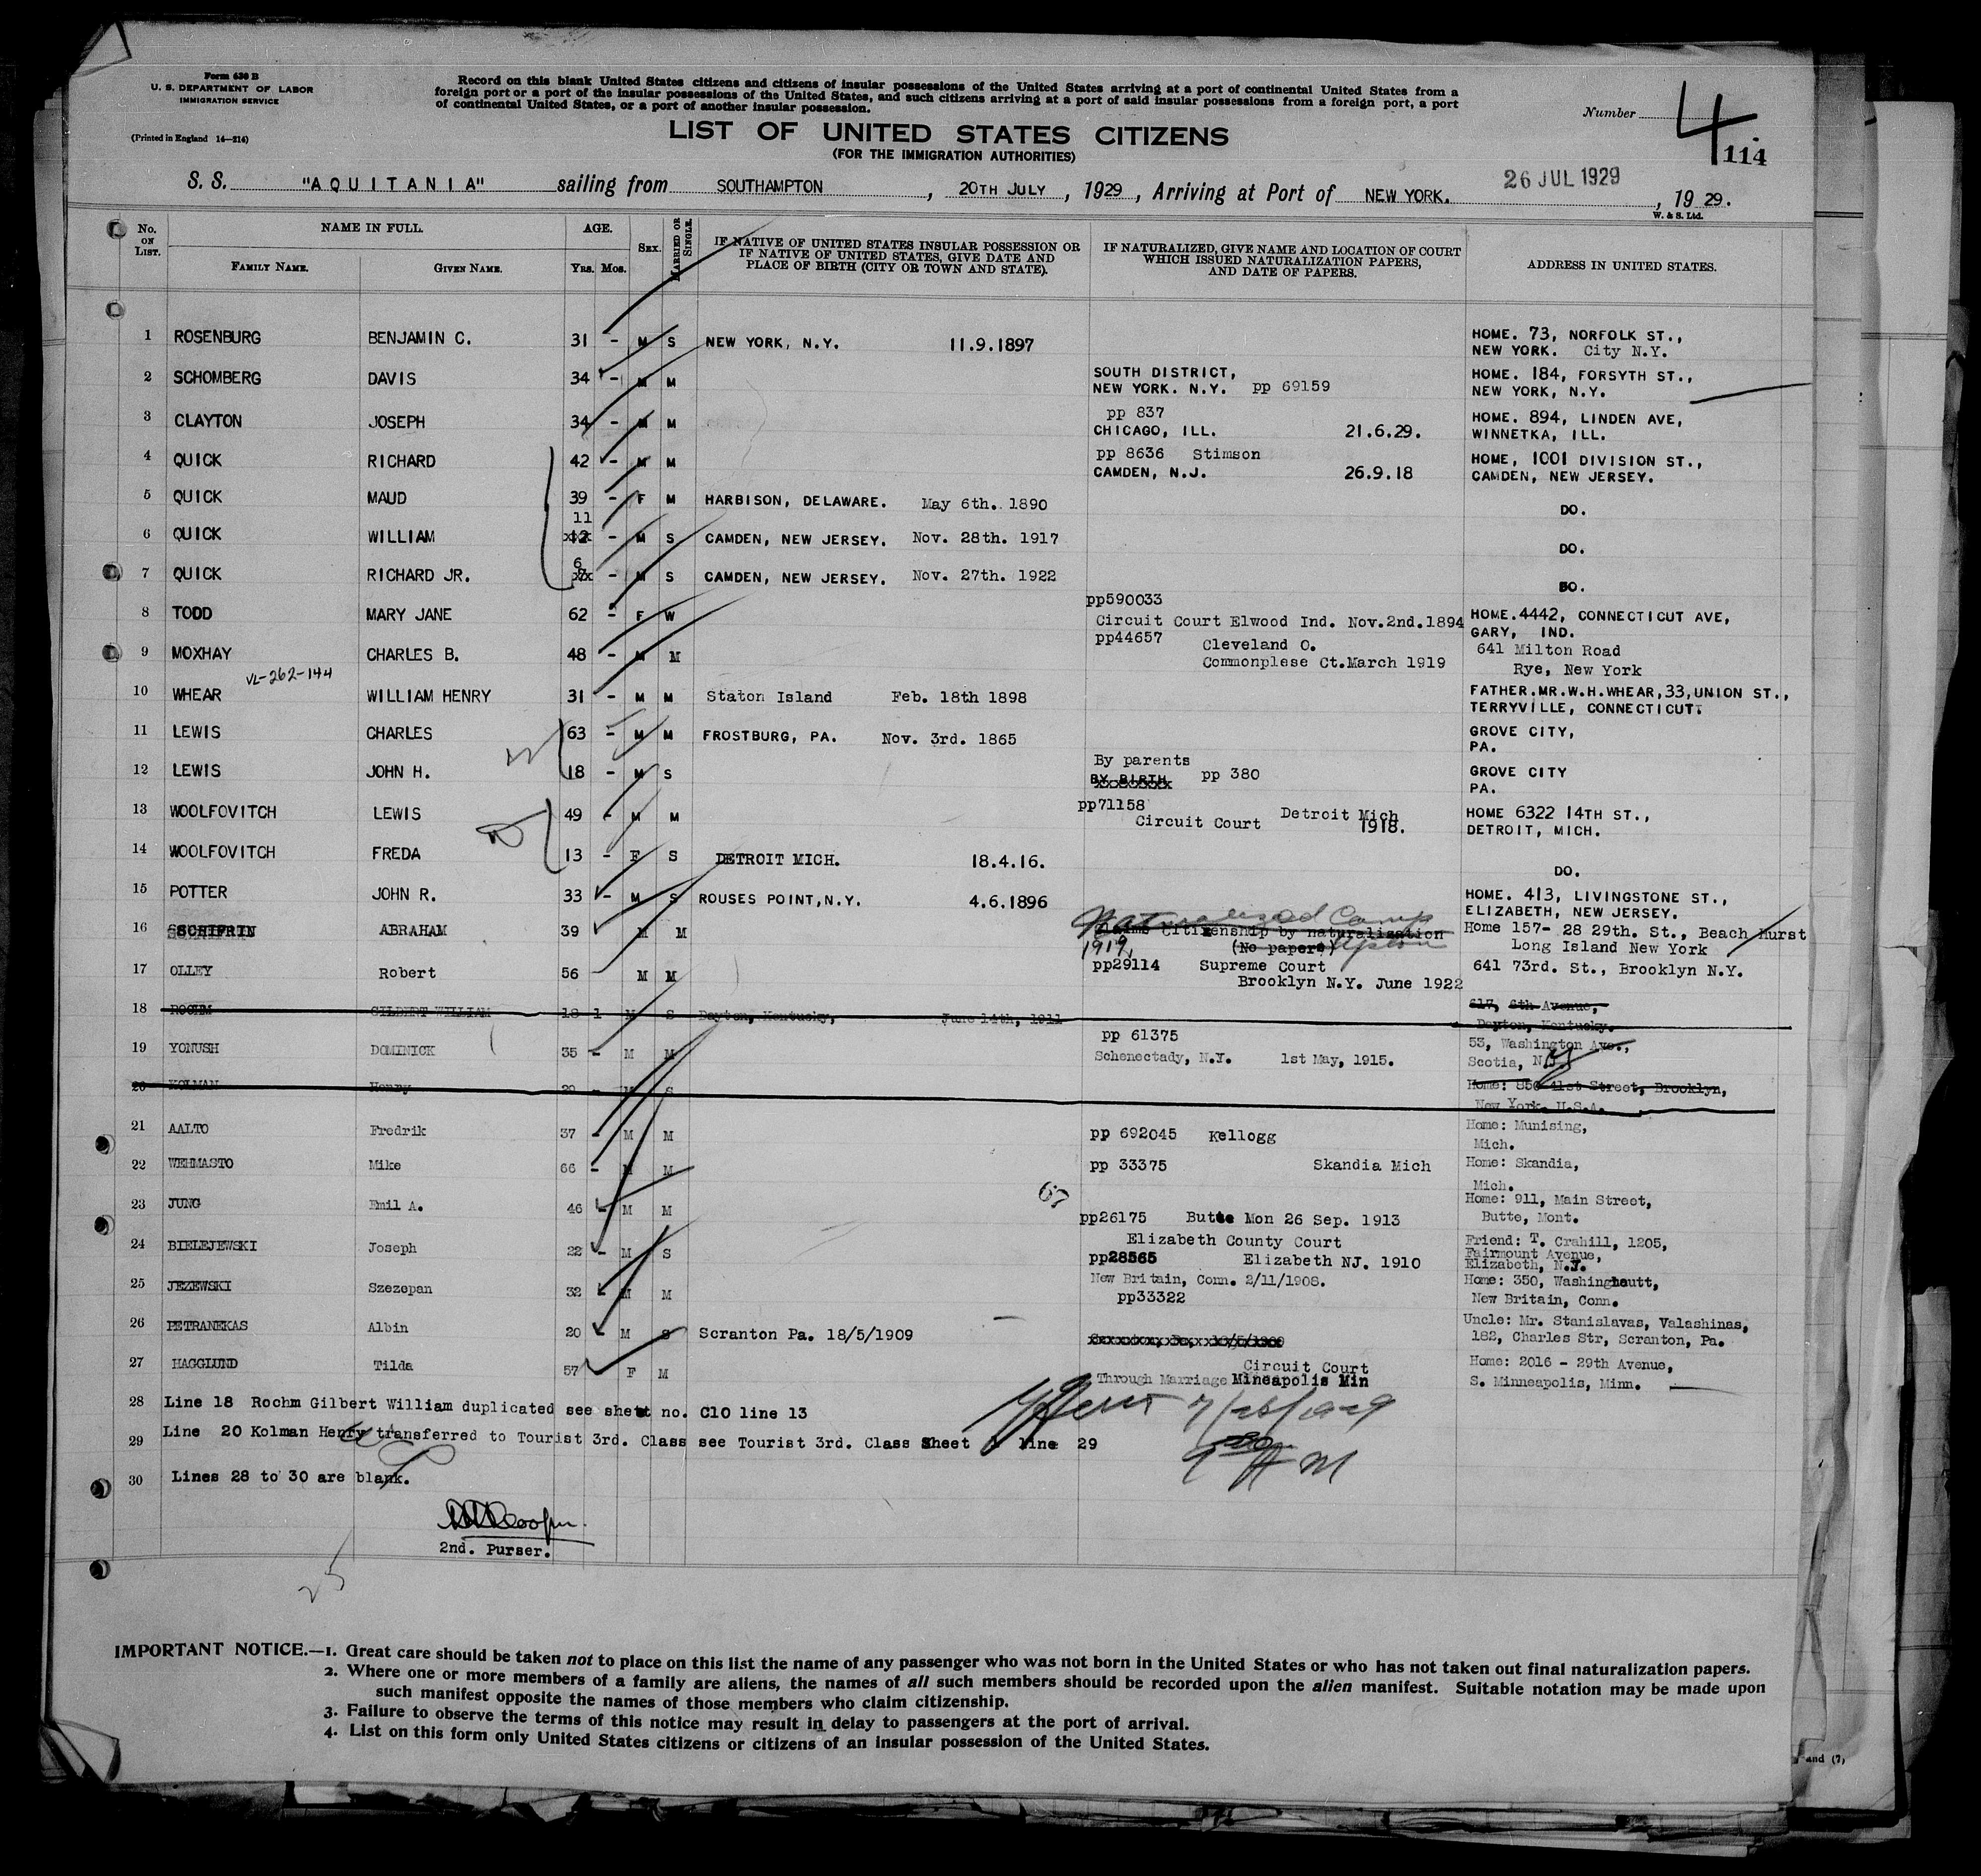 Form 630 B
U. S. DEPARTMENT OF LABOR
IMMIGRATION SERVICE
(Printed in England 14—214)
Record on this blank United States citizens and citizens of insular possessions of the United States arriving at a port of continental United States from a
foreign port or a port of the insular possessions of the United States, and such citizens arriving at a port of said insular possessions from a foreign port, a port
of continental United States, or a port of another insular possession.
Number 4
114
LIST OF UNITED STATES CITIZENS
(FOR THE IMMIGRATION AUTHORITIES)
S. S. "AQUITANIA" sailing from SOUTHAMPTON, 20TH JULY, 1929, Arriving at Port of NEW YORK. 26 JUL 1929, 19 29.
W. & S. Ltd.
No. ON LIST. NAME IN FULL. AGE. SEX. MARRIED OR SINGLE. IF NATIVE OF UNITED STATES INSULAR POSSESSION OR IF NATIVE OF UNITED STATES, GIVE DATE AND PLACE OF BIRTH (CITY OR TOWN AND STATE). IF NATURALIZED, GIVE NAME AND LOCATION OF COURT WHICH ISSUED NATURALIZATION PAPERS, AND DATE OF PAPERS. ADDRESS IN UNITED STATES.
FAMILY NAME. GIVEN NAME. YRS. MOS.
1 ROSENBURG BENJAMIN C. 31 - M S NEW YORK, N.Y. 11.9.1897 HOME. 73, NORFOLK ST.,
NEW YORK. City N.Y.
2 SCHOMBERG DAVIS 34 - M M SOUTH DISTRICT, HOME. 184, FORSYTH ST.,
NEW YORK. N.Y. pp 69159 NEW YORK, N.Y.
3 CLAYTON JOSEPH 34 - M M pp 837 HOME. 894, LINDEN AVE,
CHICAGO, ILL. 21.6.29. WINNETKA, ILL.
4 QUICK RICHARD 42 - M M pp 8636 Stimson HOME, 1001 DIVISION ST.,
CAMDEN, N.J. 26.9.18 CAMDEN, NEW JERSEY.
5 QUICK MAUD 39 - F M HARBISON, DELAWARE. May 6th. 1890 DO.
11
6 QUICK WILLIAM 12 - M S CAMDEN, NEW JERSEY. Nov. 28th. 1917 DO.
6
7 QUICK RICHARD JR. 7 - M S CAMDEN, NEW JERSEY. Nov. 27th. 1922 DO.
pp590033
8 TODD MARY JANE 62 - F W Circuit Court Elwood Ind. Nov.2nd.1894 HOME.4442, CONNECTICUT AVE,
GARY, IND.
pp44657
9 MOXHAY CHARLES B. 48 - M M Cleveland O. 641 Milton Road
Commonplese Ct.March 1919 Rye, New York
VL-262-144
10 WHEAR WILLIAM HENRY 31 - M M Staton Island Feb. 18th 1898 FATHER.MR.W.H.WHEAR,33,UNION ST.,
TERRYVILLE, CONNECTICUT.
11 LEWIS CHARLES 63 - M M FROSTBURG, PA. Nov. 3rd. 1865 GROVE CITY,
PA.
12 LEWIS JOHN H. 18 - M S By parents GROVE CITY
BY BIRTH pp 380 PA.
pp71158
13 WOOLFOVITCH LEWIS 49 - M M Circuit Court Detroit Mich 1918. HOME 6322 14TH ST.,
DETROIT, MICH.
14 WOOLFOVITCH FREDA 13 - F S DETROIT MICH. 18.4.16. DO.
15 POTTER JOHN R. 33 - M S ROUSES POINT,N.Y. 4.6.1896 HOME. 413, LIVINGSTONE ST.,
ELIZABETH, NEW JERSEY.
Naturalized Camp Upton 1919,
16 SCHIFRIN ABRAHAM 39 M M Claims Citizenship by naturalization Home 157- 28 29th. St., Beach Hurst
(No papers) Long Island New York
17 OLLEY Robert 56 M M pp29114 Supreme Court 641 73rd. St., Brooklyn N.Y.
Brooklyn N.Y. June 1922
18 ROOHM GILBERT WILLIAM 18 1 M S Dayton, Kentucky, June 14th, 1911 617, 6th Avenue,
Dayton, Kentucky.
pp 61375
19 YONUSH DOMINICK 35 - M M Schenectady, N.Y. 1st May, 1915. 53, Washington Ave.,
Scotia, N.Y.
20 KOLMAN Henry 29 - M S Home: 856 41st Street, Brooklyn,
New York. U.S.A.
21 AALTO Fredrik 37 - M M pp 692045 Kellogg Home: Munising,
Mich.
22 WEHMASTO Mike 66 - M M pp 33375 Skandia Mich Home: Skandia,
Mich.
67
23 JUNG Emil A. 46 - M M pp26175 Butte Mon 26 Sep. 1913 Home: 911, Main Street,
Butte, Mont.
24 BIELEJEWSKI Joseph 22 - M S Elizabeth County Court Friend: T. Crahill, 1205,
Fairmount Avenue,
pp28565 Elizabeth NJ. 1910 Elizabeth, N.J.
25 JEZEWSKI Szezepan 32 - M M New Britain, Conn. 2/11/1908. Home: 350, Washinghautt,
pp33322 New Britain, Conn.
26 PETRANEKAS Albin 20 - M S Scranton Pa. 18/5/1909 Uncle: Mr. Stanislavas, Valashinas,
182, Charles Str, Scranton, Pa.
27 HAGGLUND Tilda 57 F M Circuit Court Home: 2016 - 29th Avenue,
Through Marriage Mineapolis Min S. Minneapolis, Minn.
28 Line 18 Roohm Gilbert William duplicated see sheet no. C10 line 13
7/26/1929
29 Line 20 Kolman Henry transferred to Tourist 3rd. Class see Tourist 3rd. Class Sheet line 29
9 30 AM
30 Lines 28 to 30 are blank.
2nd. Purser.
25
IMPORTANT NOTICE.—1. Great care should be taken not to place on this list the name of any passenger who was not born in the United States or who has not taken out final naturalization papers.
2. Where one or more members of a family are aliens, the names of all such members should be recorded upon the alien manifest. Suitable notation may be made upon
such manifest opposite the names of those members who claim citizenship.
3. Failure to observe the terms of this notice may result in delay to passengers at the port of arrival.
4. List on this form only United States citizens or citizens of an insular possession of the United States.
and (7)